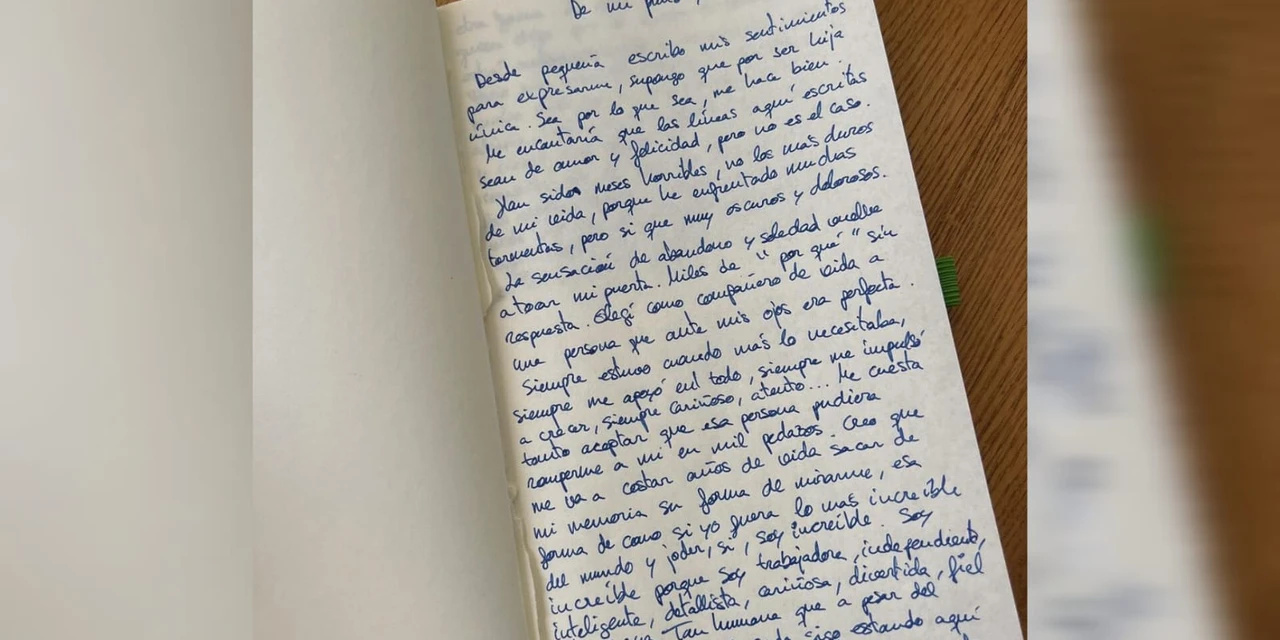 De mi puño,
Desde pequeña escribo mis sentimientos
para expresarme, supongo que por ser hija
única. Sea por lo que sea, me hace bien.
Me encantaría que las líneas aquí escritas
sean de amor y felicidad, pero no es el caso.
Han sido meses horribles, no los mas duros
de mi vida, porque he enfrentado muchas
tormentas, pero si que muy oscuros y dolorosos.
La sensación de abandono y soledad vuelve
a tocar mi puerta. Miles de "por qué" sin
respuesta. Elegí como compañero de vida a
una persona que ante mis ojos era perfecta.
Siempre estuvo cuando más lo necesitaba,
siempre me apoyó en todo, siempre me impulsó
a crecer, siempre cariñoso, atento... Me cuesta
tanto aceptar que esa persona pudiera
romperme a mi en mil pedazos. Creo que
me va a costar años de vida sacar de
mi memoria su forma de mirarme, esa
forma de como si yo fuera lo mas increíble
del mundo y joder, si, soy increíble. Soy
increíble porque soy trabajadora, independiente,
inteligente, detallista, cariñosa, divertida, fiel
Tan humana que a pesar del
sigo estando aquí